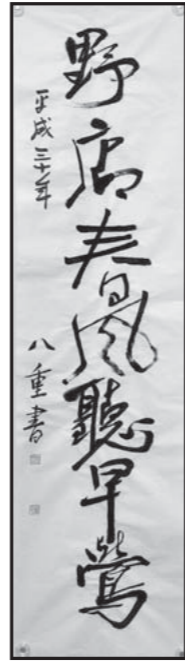 野店春風聴早鶯
平成三十年
八重書